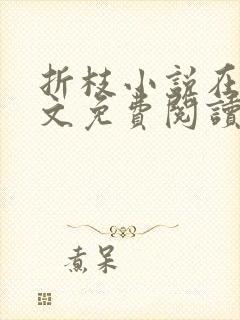 折枝小说在
文免費閱讀
煮呆